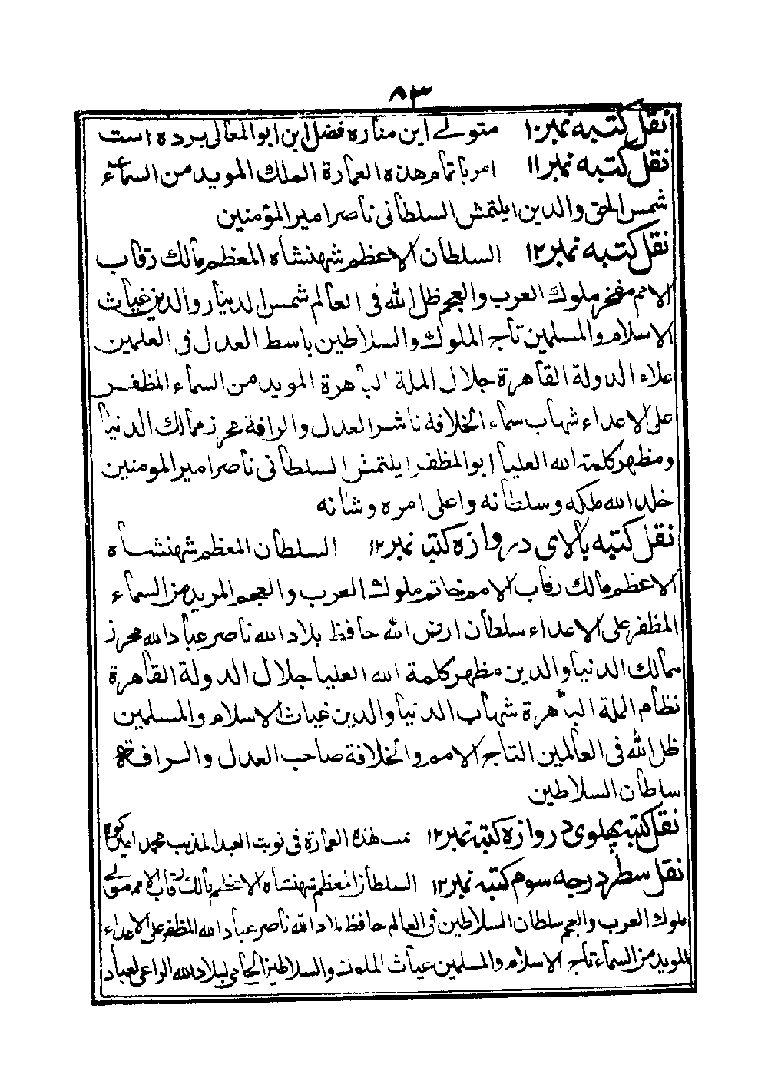 ٨٣
نقل کتبہ نمبر ۱۰ متولے این منارہ فضل ابن ابو المعالی بردہ است
نقل کتبہ نمبر ۱۱ امر باتمام هذه العمارة الملك المويد من السماء
شمس الحق والدین ایلتمش السلطانی ناصر امیر المؤمنین
نقل کتبہ نمبر ۱۲ السلطان الاعظم شهنشاه المعظم مالك رقاب
الامم مفخر ملوك العرب والعجم ظل الله فی العالم شمس الدنیا والدین غیاث
الاسلام والمسلمین تاج الملوك والسلاطین باسط العدل فی العلمین
علاء الدولة القاهرة جلال الملة الباهرة الموید من السماء المظفر
علی الاعداء شهاب سماء الخلافة ناشر العدل والرافة محرز ممالك الدنیا
ومظهر کلمة الله العلیا ابو المظفر ایلتمش السلطانی ناصر امیر المومنین
خلد الله ملکه وسلطانه واعلی امره وشانه
نقل کتبہ بالای دروازہ کتبہ نمبر ۱۲ السلطان المعظم شهنشاه
الاعظم مالك رقاب الامم خاتم ملوك العرب والعجم الموید من السماء
المظفر علی الاعداء سلطان ارض الله حافظ بلاد الله ناصر عباد الله محرز
ممالك الدنیا والدین مظهر کلمة الله العلیا جلال الدولة القاهرة
نظام الملة الباهرة شهاب الدنیا والدین غیاث الاسلام والمسلمین
ظل الله فی العالمین التاج الامم والخلافة صاحب العدل والرافة
سلطان السلاطین
نقل کتبہ پهلوی دروازہ کتبہ نمبر ۱۲ هذه العمارة فی نوبت العبد المذنب محمد امیر کوه
نقل سطر درجه سوم کتبہ نمبر ۱۲ السلطان المعظم شهنشاه الاعظم مالك رقاب الامم مولے
ملوك العرب والعجم سلطان السلاطین فی العالم حافظ بلاد الله ناصر عباد الله المظفر علی الاعداء
الموید من السماء تاج الاسلام والمسلمین غیاث الملوك والسلاطین الحامی لبلاد الله الراعی لعباد